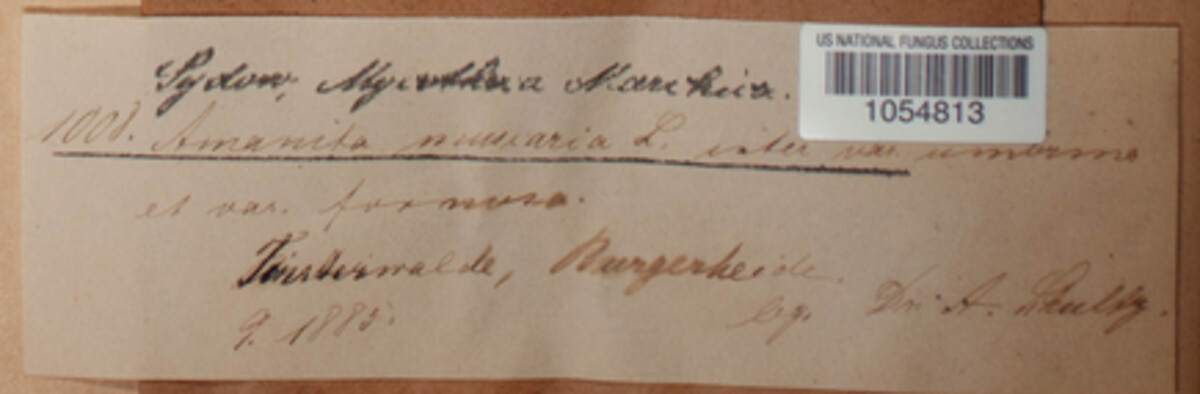 US NATIONAL FUNGUS COLLECTIONS
1054813
Sydow, Mycotheca Marchica.
1008. Amanita muscaria L. inter var. umbrina
et var. formosa.
Finsterwalde, Bürgerheide.
9. 1885.
leg. Dr. A. Schultz.